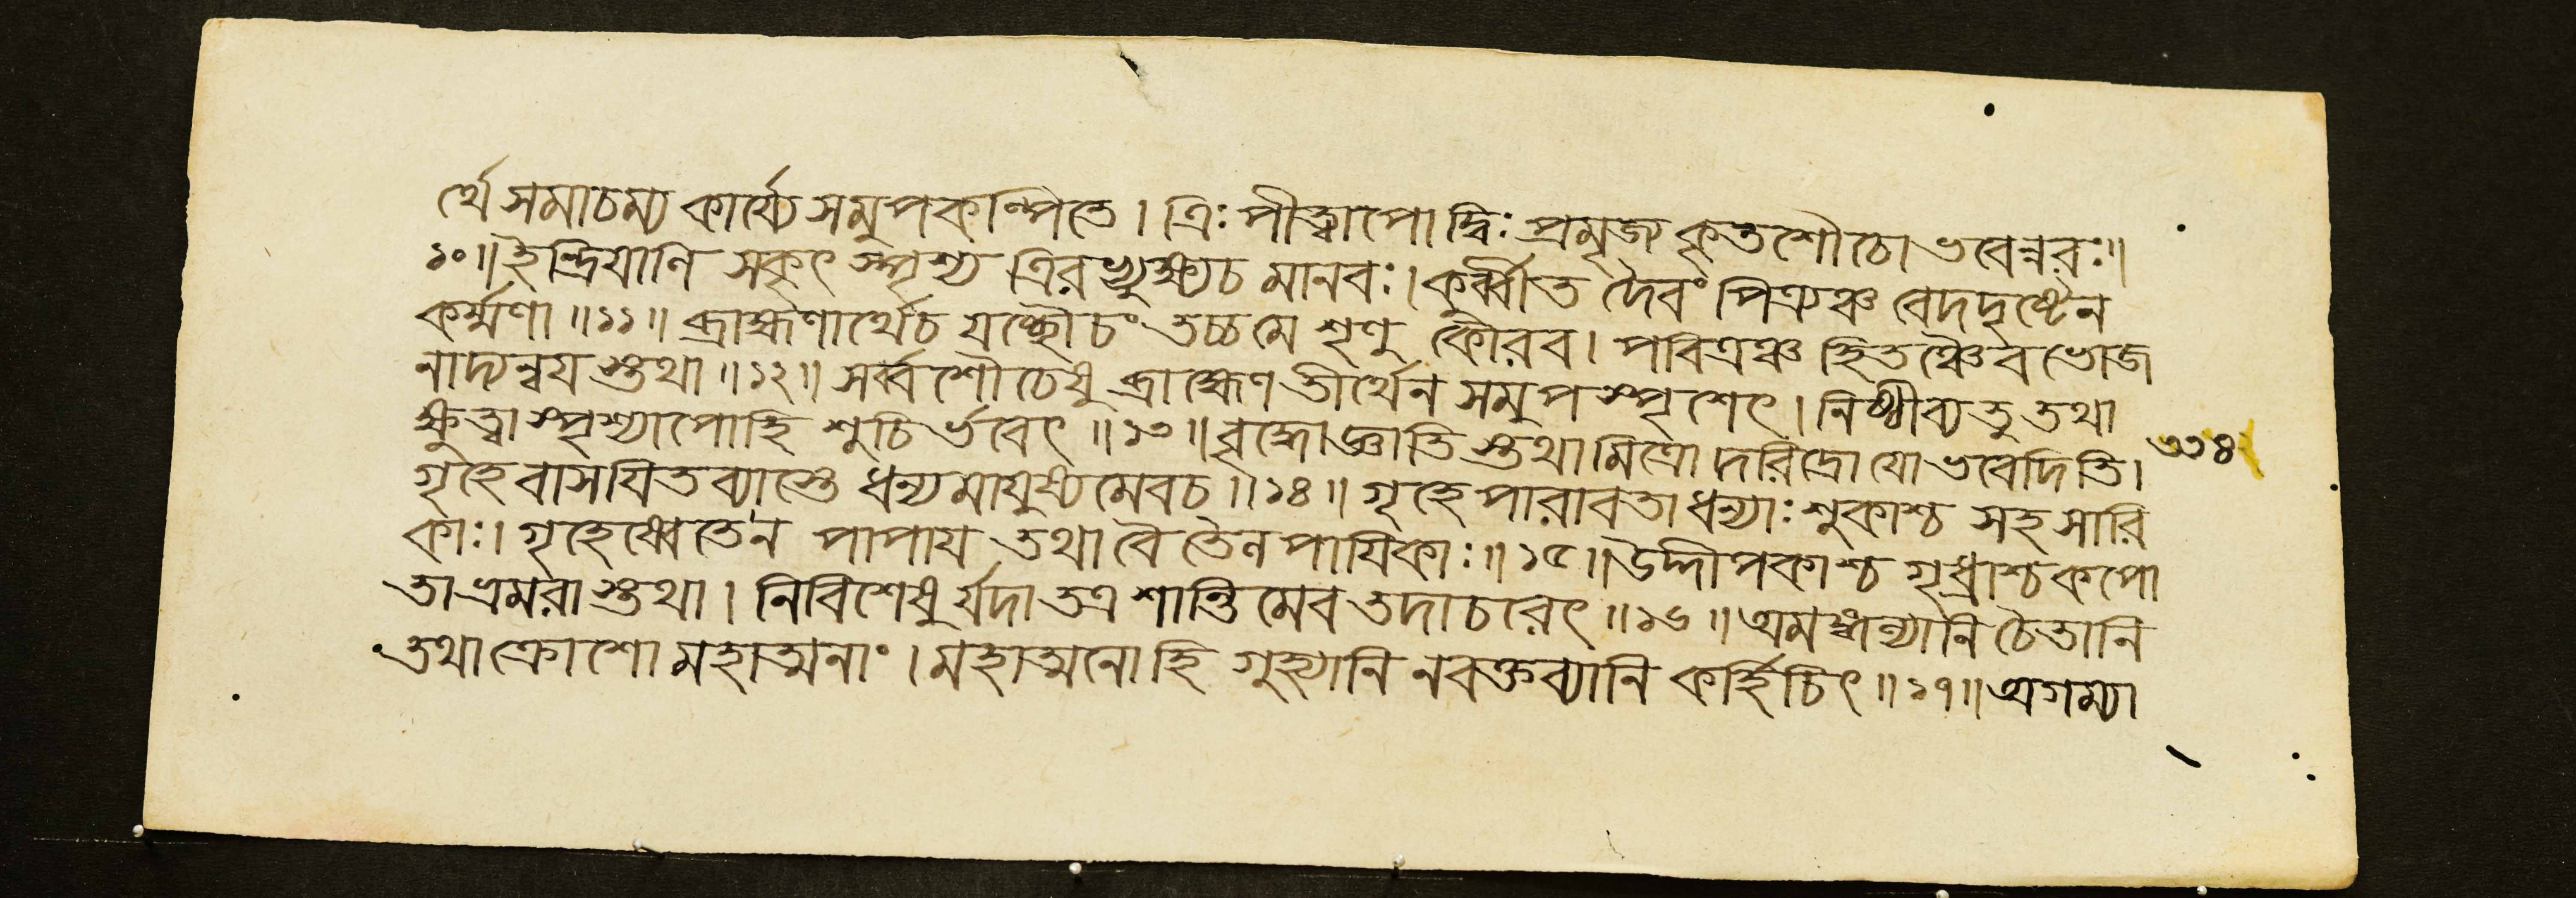 র্থে সমাচম্য কার্য্যে সমুপকল্পিতে । ত্রিঃ পীত্বাপো দ্বিঃ প্রমৃজ্য কৃতশৌচো ভবেন্নরঃ ॥
১০ ॥ ইন্দ্রিয়াণি সকৃৎ স্পৃশ্য ত্রিরভ্যুক্ষ্য চ মানবঃ । কুর্ব্বীত দৈবং পিত্র্যঞ্চ বেদদৃষ্টেন
কর্ম্মণা ॥ ১১ ॥ ব্রাহ্মণার্থে চ যচ্ছৌচং তচ্চ মে শৃণু কৌরব । পবিত্রঞ্চ হিতঞ্চৈব ভোজ
নাদ্যন্বয়স্তথা ॥ ১২ ॥ সর্ব্বশৌচেষু ব্রাহ্মেণ তীর্থেন সমুপস্পৃশেৎ । নিষ্ঠীব্য তু তথা
ক্ষুত্বা স্পৃশ্যাপো হি শুচির্ভবেৎ ॥ ১৩ ॥ বৃদ্ধো জ্ঞাতিস্তথা মিত্রো দরিদ্রো যো ভবেদিতি ।
৩৩৪
গৃহে বাসয়িতব্যাস্তে ধন্যমায়ুষ্যমেব চ ॥ ১৪ ॥ গৃহে পারাবতা ধন্যাঃ শুকাশ্চ সহ সারি
কাঃ । গৃহেষ্বেতে ন পাপায় তথা বৈ তৈলপায়িকাঃ ॥ ১৫ ॥ উদ্দীপকাশ্চ গৃধ্রাশ্চ কপো
তা ভ্রমরাস্তথা । নিবিশেষুর্যদা তত্র শান্তিমেব তদাচরেৎ ॥ ১৬ ॥ অমঙ্গল্যানি চৈতানি
তথাক্রোশো মহাত্মনাং । মহাত্মনো হি গুহ্যানি ন বক্তব্যানি কর্হিচিৎ ॥ ১৭ ॥ অগম্যা